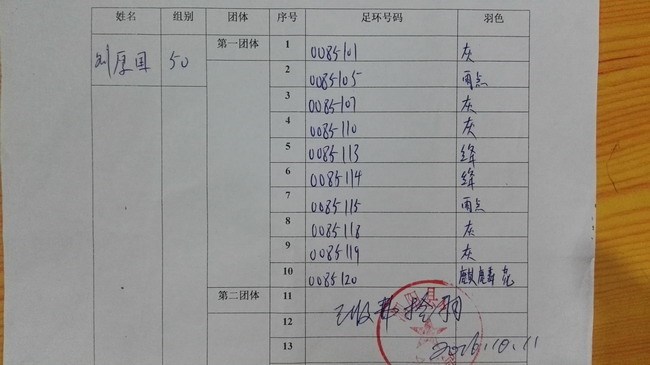 姓名 组别 团体 序号 足环号码 羽色
刘厚国 50 第一团体 1 0085101 灰
2 0085105 雨点
3 0085107 灰
4 0085110 灰
5 0085113 绛
6 0085114 绛
7 0085115 雨点
8 0085118 灰
9 0085119 灰
10 0085120 麒麟花
第二团体 11
12
13 2016.10.11